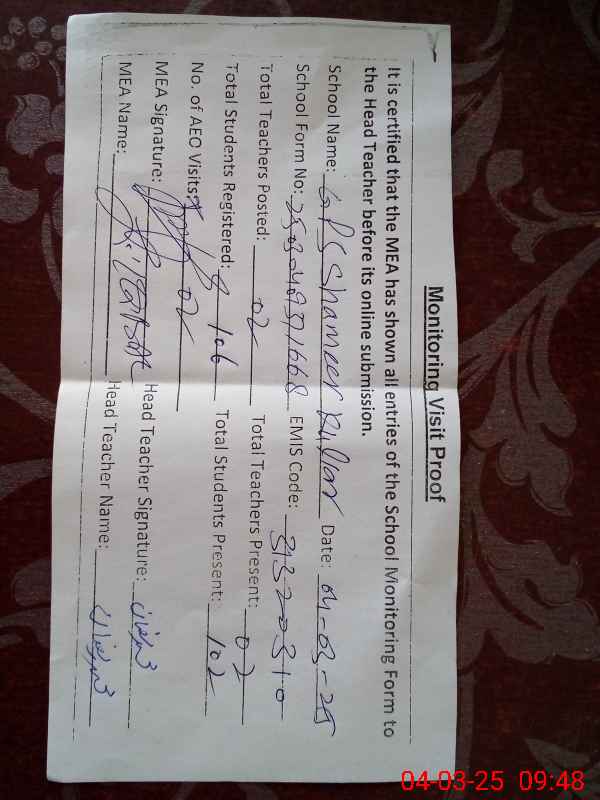 Monitoring Visit Proof
It is certified that the MEA has shown all entries of the School Monitoring Form to
the Head Teacher before its online submission.
School Name: GPS Shameer Date: 04-03-25
School Form No: EMIS Code: 31320310
Total Teachers Posted: 02 Total Teachers Present: 02
Total Students Registered: 106 Total Students Present: 102
No. of AEO Visits: 02
MEA Signature: Head Teacher Signature:
MEA Name: Head Teacher Name:
04-03-25 09:48